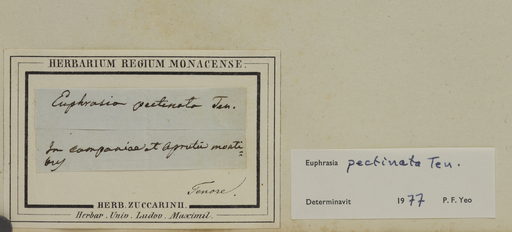 HERBARIUM REGIUM MONACENSE.
Euphrasia pectinata Ten.
In campaniae et Aprutii monti=
bus
Tenore.
HERB. ZUCCARINII.
Herbar. Univ. Ludov. Maximil.
Euphrasia pectinata Ten.
Determinavit 1977 P. F. Yeo